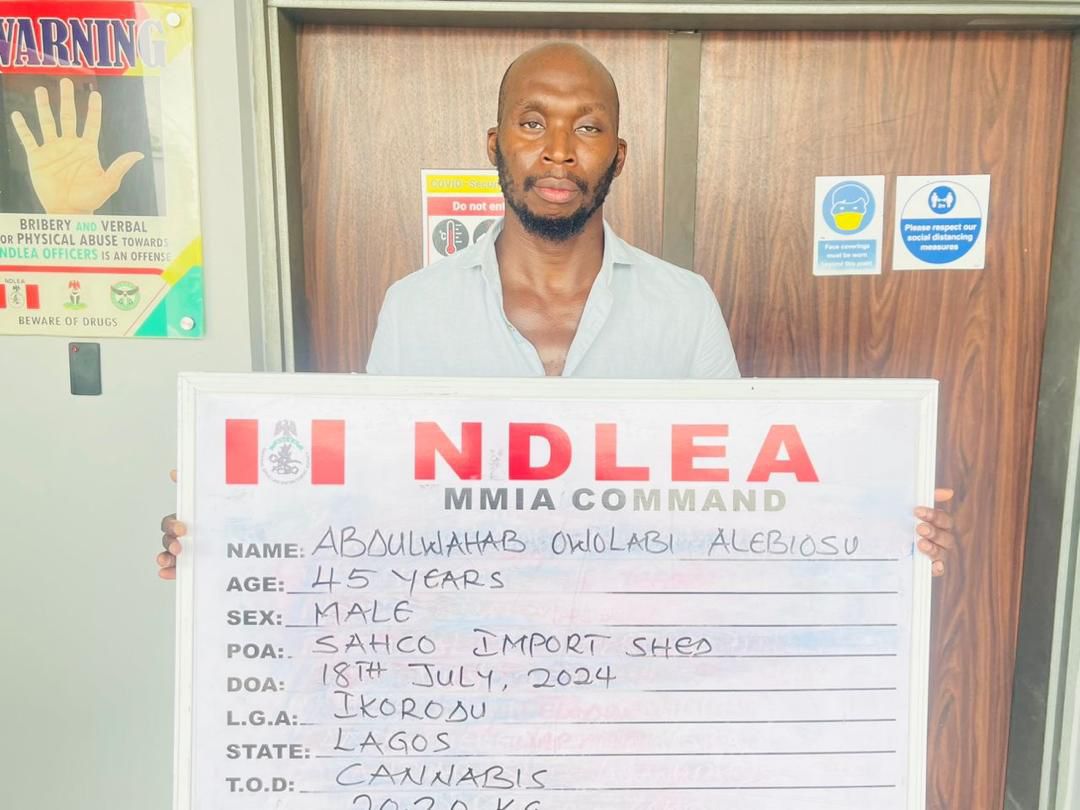 WARNING
BRIBERY AND VERBAL
OR PHYSICAL ABUSE TOWARDS
NDLEA OFFICERS IS AN OFFENSE
NDLEA
BEWARE OF DRUGS
COVID
Do not
°C
Face coverings
must be worn
beyond this point
2m
Please respect our
social distancing
measures
NDLEA
MMIA COMMAND
NAME: ABDULWAHAB OWOLABI ALEBIOSU
AGE: 45 YEARS
SEX: MALE
POA: SAHCO IMPORT SHED
DOA: 18TH JULY, 2024
L.G.A: IKORODU
STATE: LAGOS
T.O.D: CANNABIS